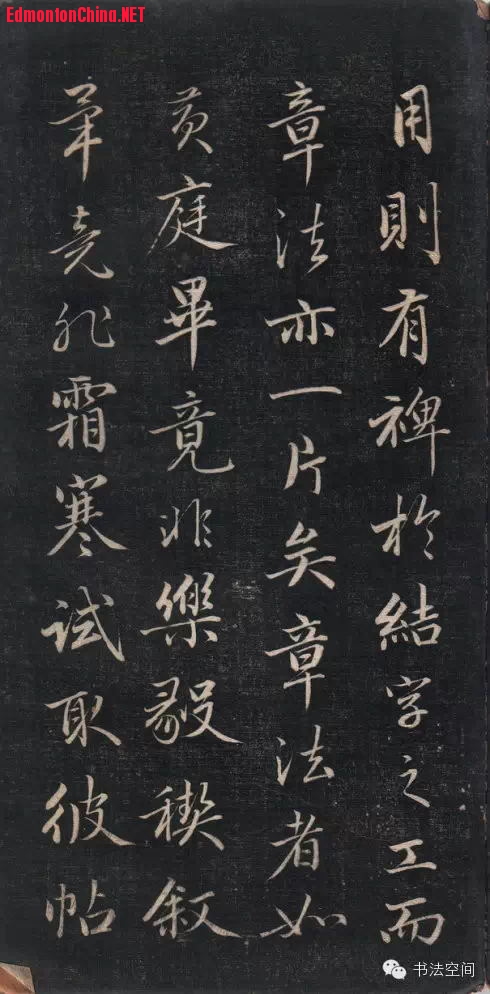 EdmontonChina.NET
用則有裨於結字之工而
章法亦一片矣章法者如
黃庭畢竟非樂毅禊叙
畢竟非霜寒試取彼帖
书法空间